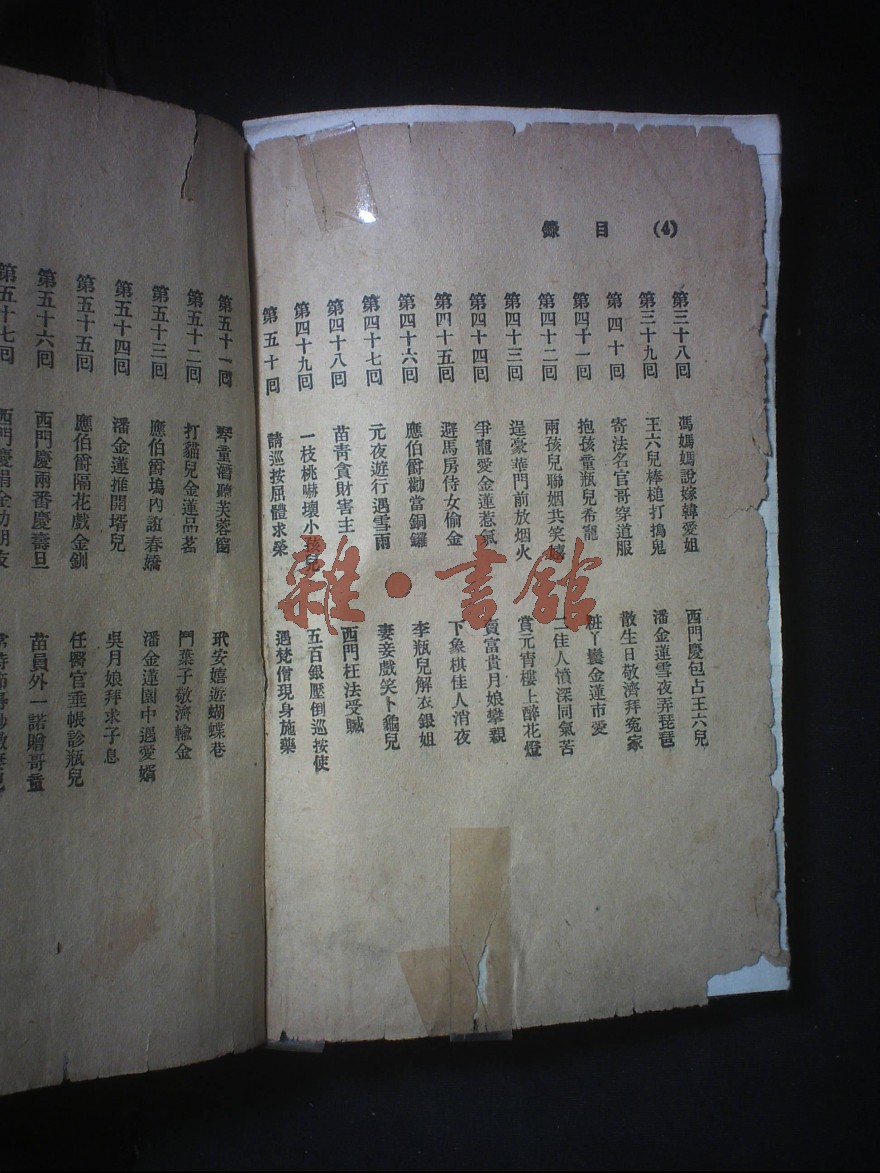 (4) 目錄
第三十八回 馮媽媽說嫁韓愛姐 西門慶包占王六兒
第三十九回 王六兒棒槌打搗鬼 潘金蓮雪夜弄琵琶
第四十回 寄法名官哥穿道服 散生日敬濟拜寃家
第四十一回 抱孩童瓶兒希寵 粧丫鬟金蓮市愛
第四十二回 兩孩兒聯姻共笑嬉 二佳人憤深同氣苦
第四十三回 逞豪華門前放烟火 賞元宵樓上醉花燈
第四十四回 爭寵愛金蓮惹氣 賣富貴月娘攀親
第四十五回 避馬房侍女偷金 下象棋佳人消夜
第四十六回 應伯爵勸當銅鑼 李瓶兒解衣銀姐
第四十七回 元夜遊行遇雪雨 妻妾戲笑卜龜兒
第四十八回 苗青貪財害主 西門枉法受贓
第四十九回 一枝桃嚇壞小孩兒 五百銀壓倒巡按使
第五十回 請巡按屈體求榮 遇梵僧現身施藥
第五十一回 琴童酒聽芙蓉窗 玳安嬉遊蝴蝶巷
第五十二回 打貓兒金蓮品茗 鬥葉子敬濟輸金
第五十三回 應伯爵塢內誼春嬌 潘金蓮園中遇愛婿
第五十四回 潘金蓮推開壻兒 吳月娘拜求子息
第五十五回 應伯爵隔花戲金釧 任醫官垂帳診瓶兒
第五十六回 西門慶兩番慶壽旦 苗員外一諾贈哥童
第五十七回 西門慶捐金助朋友
雜·書舘